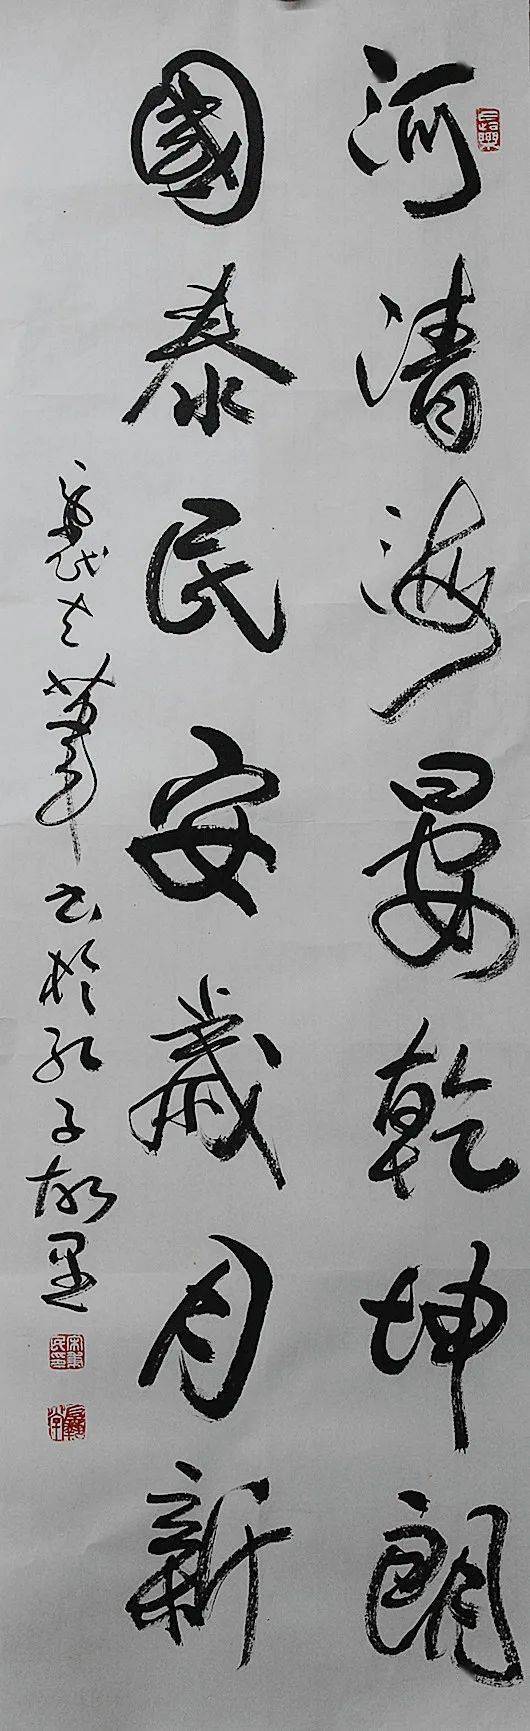 河清海晏乾坤朗
國泰民安歲月新
書於孔子故里